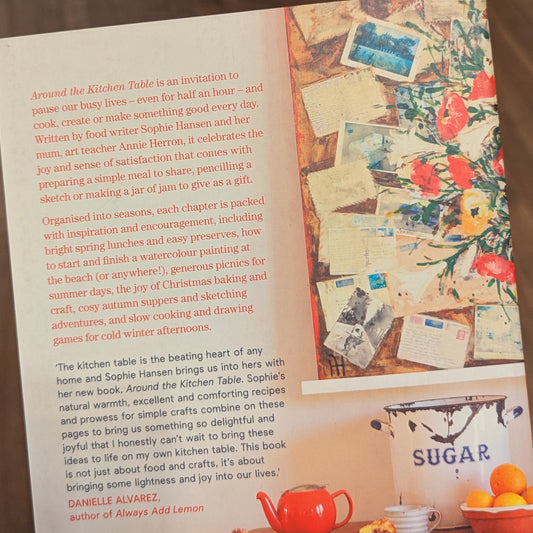 Around the Kitchen Table is an invitation to
pause our busy lives – even for half an hour – and
cook, create or make something good every day.
Written by food writer Sophie Hansen and her
mum, art teacher Annie Herron, it celebrates the
joy and sense of satisfaction that comes with
preparing a simple meal to share, pencilling a
sketch or making a jar of jam to give as a gift.
Organised into seasons, each chapter is packed
with inspiration and encouragement, including
bright spring lunches and easy preserves, how
to start and finish a watercolour painting at
the beach (or anywhere!), generous picnics for
summer days, the joy of Christmas baking and
craft, cosy autumn suppers and sketching
adventures, and slow cooking and drawing
games for cold winter afternoons.
‘The kitchen table is the beating heart of any
home and Sophie Hansen brings us into hers with
her new book, Around the Kitchen Table. Sophie’s
natural warmth, excellent and comforting recipes
and prowess for simple crafts combine on these
pages to bring us something so delightful and
joyful that I honestly can’t wait to bring these
ideas to life on my own kitchen table. This book
is not just about food and crafts, it’s about
bringing some lightness and joy into our lives.’
DANIELLE ALVAREZ,
author of Always Add Lemon
SUGAR